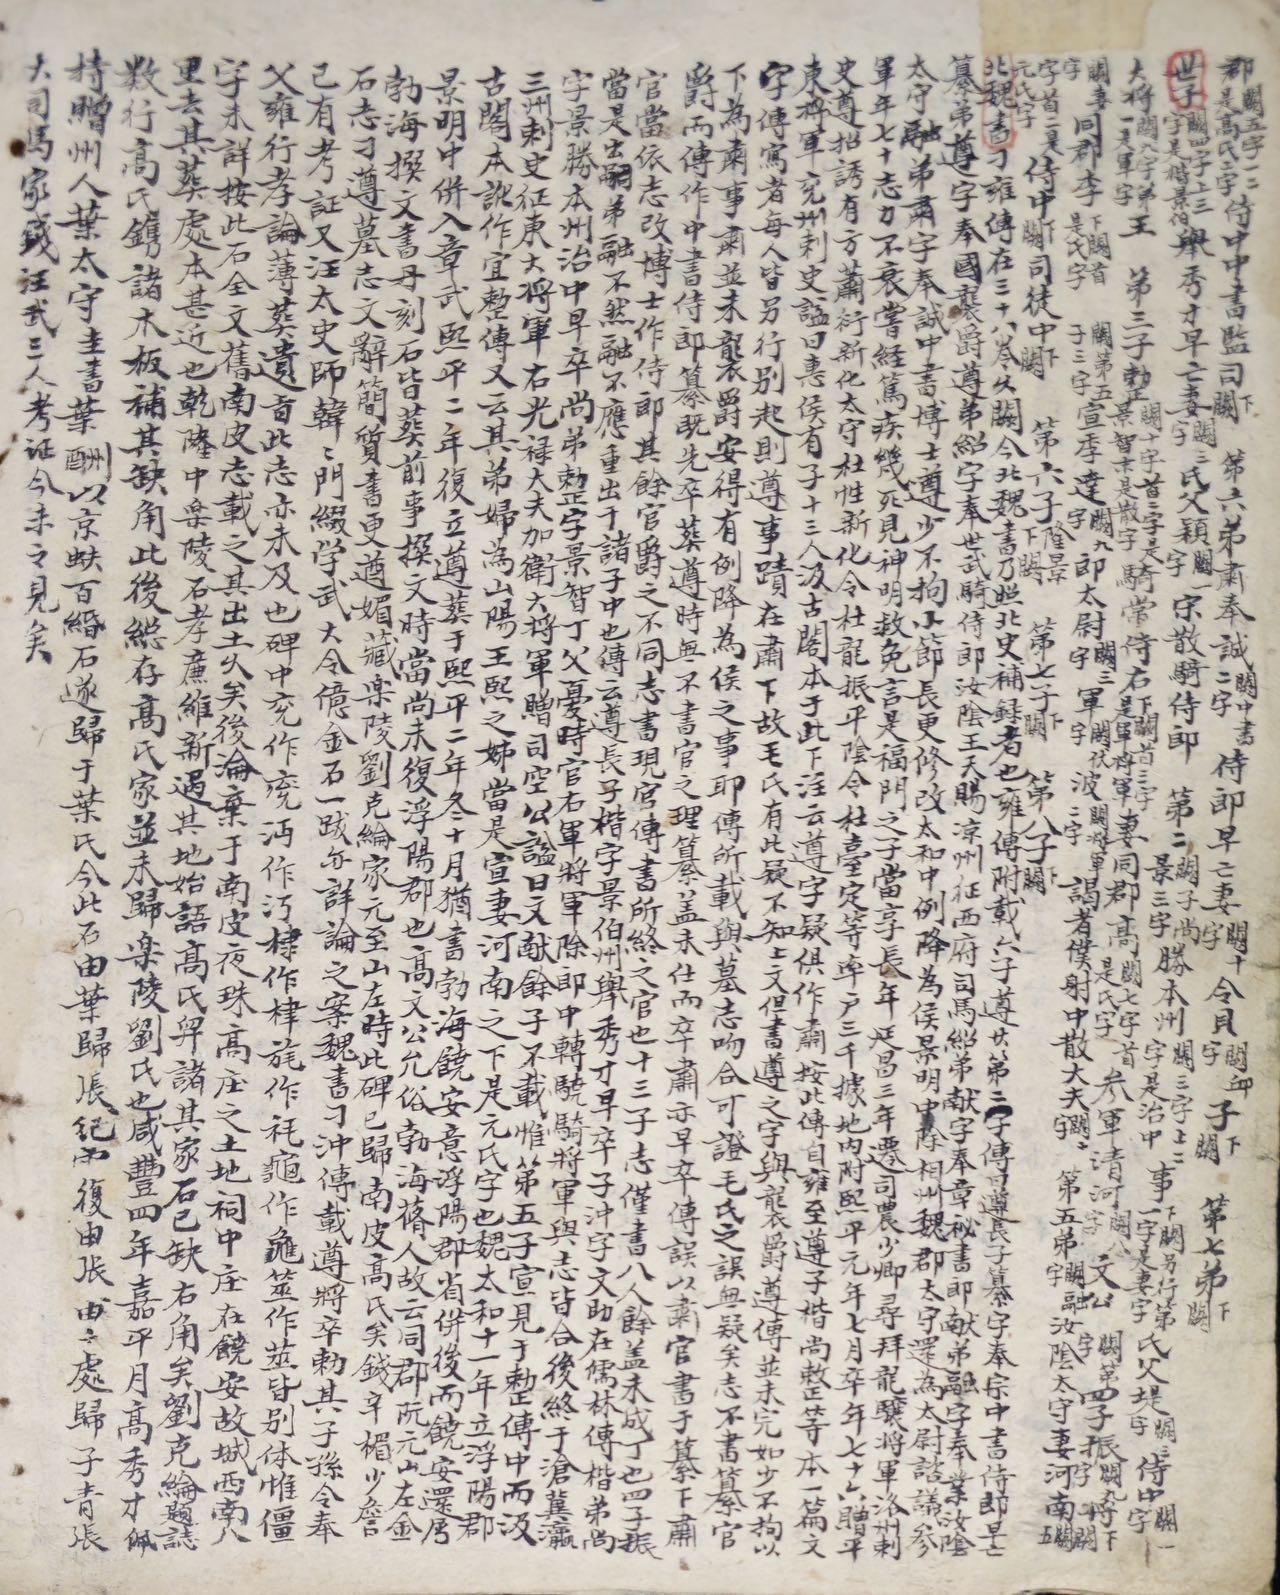 郡闕五字一二是高氏二字侍中中書監司下闕　第六弟肅奉誠闕中書二字侍郎早亡妻闕十字令月闕卹字子下闕　第七弟下闕
世子闕四字上三字是楷景伯舉秀才早亡妻闕三字氏父穎闕字宋散騎侍郎　第二闕子尚景三字勝本州闕三字上二字是治中事下闕另行第一字是妻字氏父堤闕三字侍中闕一字
大將闕八字弟一是軍字王　第三子勃闕十字首三字是整景智末是散字騎常侍右下闕首三字是軍將軍妻同郡高闕七字首是氏字參軍清河闕字文公闕第字四子振闕九字下
闕妻字同郡李下闕首是氏字　闕第五子三字宣季達闕九字郎太尉闕三字軍闕伏字波闕將軍二字謁者僕射中散大夫闕二字　第五弟闕融字汝陰太守妻河南闕五
字首二是元氏字侍中下闕司徒中下闕　第六子隆景下闕　第七子下闕　第八子下闕
北魏書刁雍傳在三十八卷久闕今北魏書乃照北史補錄者也雍傳附載六子遵廿第二字傳曰遵長子纂字奉宗中書侍郎早亡
纂弟遵字奉國襲爵遵弟紹字奉世武騎侍郎汝陰王天賜涼州征西府司馬紹弟獻字奉章秘書郎獻弟融字奉業汝陰
太守融弟肅字奉誠中書博士遵少不拘小節長更修改太和中例降為侯景明中除相州魏郡太守還為太尉諮議參
軍年七十志力不衰嘗經篤疾幾死見神明救免言是福門之子當享長年延昌三年遷司農少卿尋拜龍驤將軍洛州刺
史遵招誘有方蕭衍新化太守杜性新化令杜龍振平陰令杜臺定等率戶三千據地內附熙平元年七月卒年七十六贈平
東將軍兗州刺史謚曰惠侯有子十三人汲古閣本于此下注云遵字疑俱作肅按此傳自雍至遵子楷尚敕整等本一篇文
字傳寫者每人皆另行別起則遵事蹟在肅下故毛氏有此疑不知上文但書遵之字與襲爵遵傳並未完如少不拘以
下為肅事肅並未襲爵安得有例降為侯之事耶傳所載與墓志吻合可證毛氏之誤無疑矣志不書纂官
爵而傳作中書侍郎纂既先卒葬遵時無不書官之理纂蓋未仕而卒肅亦早卒傳誤以肅官書于纂下肅
官當依志改博士作侍郎其餘官爵之不同志書現官傳書所終之官也十三子志僅書八人餘蓋未成丁也四子振
當是出嗣弟融不然融不應重出于諸子中也傳云遵長子楷字景伯州舉秀才早卒子沖字文助在儒林傳楷弟尚
字景勝本州治中早卒尚弟勃整字景智丁父憂時官右軍將軍除郎中轉驍騎將軍與志皆合後終于滄冀瀛
三州刺史征東大將軍右光祿大夫加衛大將軍贈司空公謚曰文獻餘子不載惟第五子宣見于勃整傳中而汲
古閣本訛作宜整傳又云其弟婦為山陽王熙之姊當是宣妻河南之下是元氏字也魏太和十一年立浮陽郡
景明中併入章武熙平二年復立遵葬于熙平二年冬十月猶書勃海饒安意浮陽郡省併後而饒安還屬
勃海撰文書丹刻石皆葬前事撰文時當尚未復浮陽郡也高文公允俗勃海蓨人故云同郡阮元山左金
石志刁遵墓志文辭簡質書更遒媚藏樂陵劉克綸家元至山左時此碑已歸南皮高氏矣錢辛楣少詹
已有考証又汪太史師韓二門綴学武大令億金石一跋亦詳論之案魏書刁沖傳載遵將卒勅其子孫令奉
父雍行孝論薄葬遺旨此志亦未及也碑中兖作兗沔作汅棣作棣旄作秏龜作龜筮作莁皆別体惟僵
字未詳按此石全文舊南皮志載之其出土久矣後淪棄于南皮夜珠高庄之土地祠中庄在饒安故城西南八
里去其葬處本甚近也乾隆中樂陵石孝廉維新遇其地始語高氏舁諸其家石已缺右角矣劉克綸題誌
数行高氏鐫諸木板補其缺角此後總存高氏家並未歸樂陵劉氏也咸豐四年嘉平月高秀才佩
持贈州人葉太守圭書葉酬以京蚨百緡石遂歸于葉氏今此石由葉歸張紀而復由張由之處歸子青張
大司馬家錢汪武三人考証今未之見矣